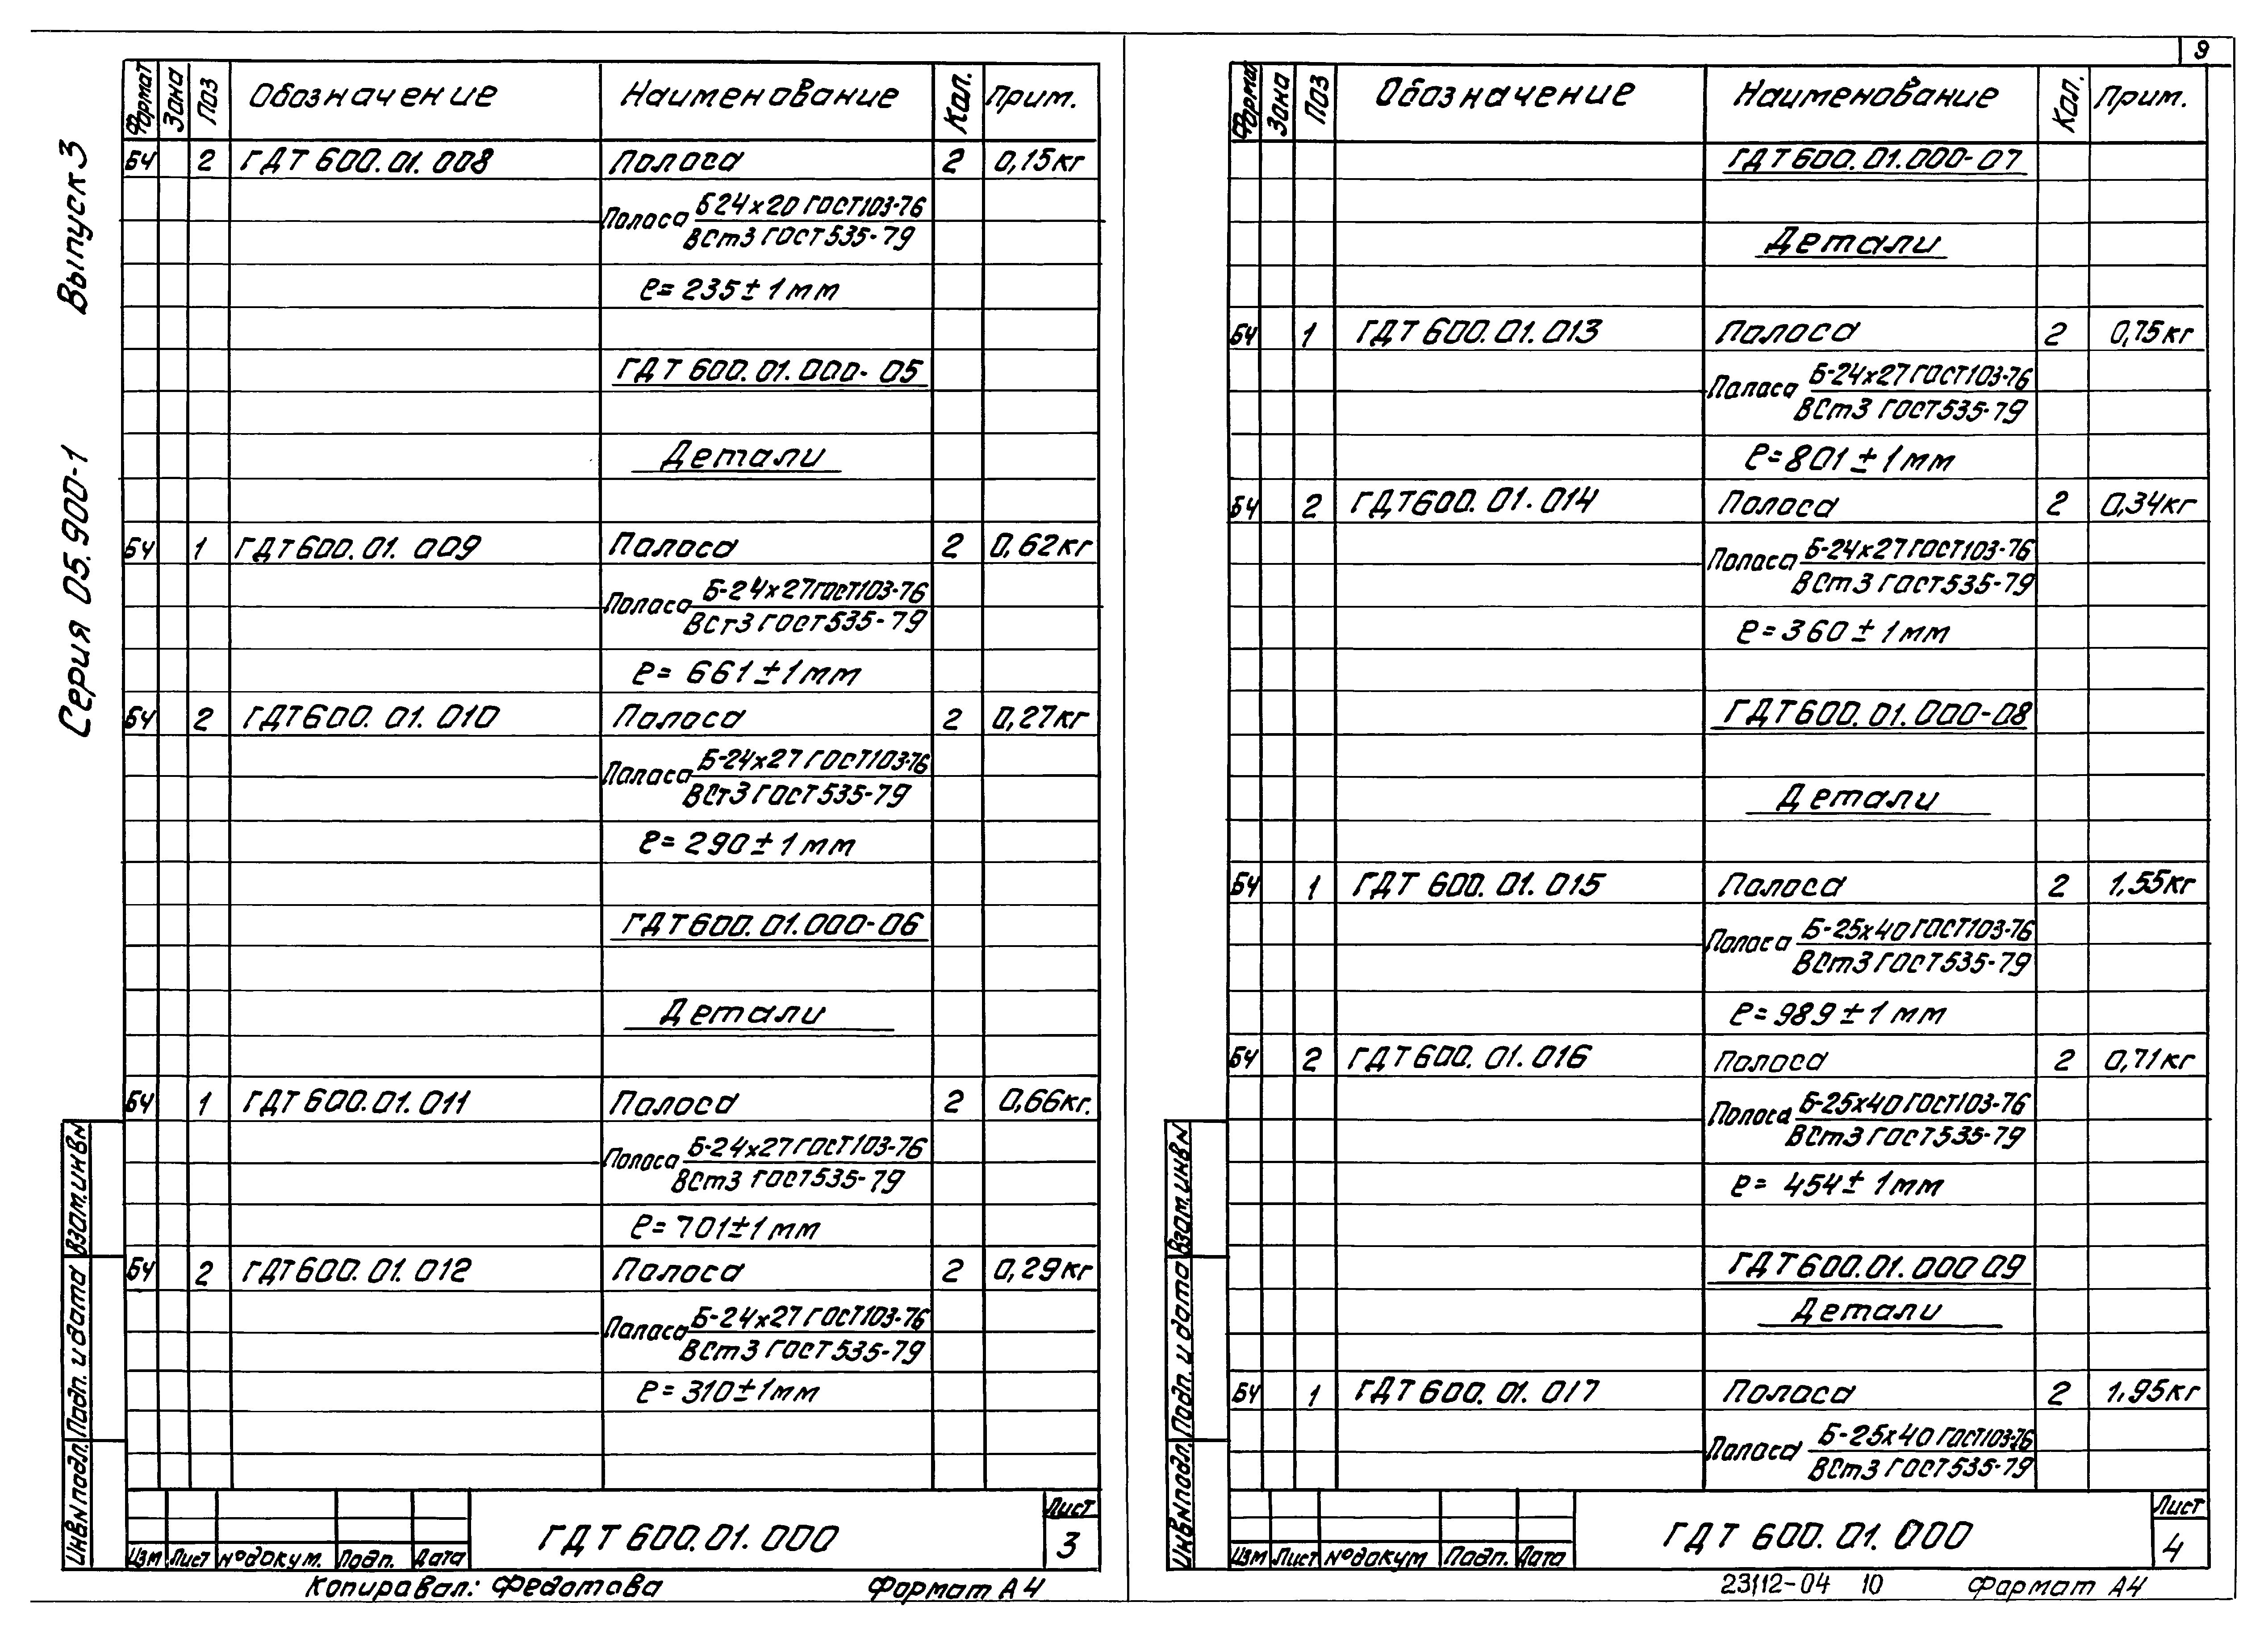 9
Серия 05.900-1 Выпуск 3
Формат Зона Поз Обозначение Наименование Кол. Прим.
БЧ 2 ГДТ 600.01.008 Полоса 2 0,15кг
Полоса Б 24х20 ГОСТ103-76
ВСт3 ГОСТ535-79
ℓ=235±1мм
ГДТ 600.01.000-05
Детали
БЧ 1 ГДТ600.01.009 Полоса 2 0,62кг
Полоса Б-24х27ГОСТ103-76
ВСт3 ГОСТ535-79
ℓ= 661±1мм
БЧ 2 ГДТ600.01.010 Полоса 2 0,27кг
Полоса Б-24х27 ГОСТ103-76
ВСт3 ГОСТ535-79
ℓ=290±1мм
ГДТ600.01.000-06
Детали
БЧ 1 ГДТ600.01.011 Полоса 2 0,66кг.
Полоса Б-24х27ГОСТ103-76
ВСт3 ГОСТ535-79
ℓ=701±1мм
БЧ 2 ГДТ600.01.012 Полоса 2 0,29кг
Полоса Б-24х27 ГОСТ103-76
ВСт3 ГОСТ535-79
ℓ=310±1мм
Инв.N подл. Подп. и дата Взам.инв.N
Изм Лист №докум. Подп. Дата
ГДТ 600.01.000
Лист
3
Копировал: Федотова Формат А4
Формат Зона Поз Обозначение Наименование Кол. Прим.
ГДТ600.01.000-07
Детали
БЧ 1 ГДТ600.01.013 Полоса 2 0,75кг
Полоса Б-24х27ГОСТ103-76
ВСт3 ГОСТ535-79
ℓ=801±1мм
БЧ 2 ГДТ600.01.014 Полоса 2 0,34кг
Полоса Б-24х27ГОСТ103-76
ВСт3 ГОСТ535-79
ℓ=360±1мм
ГДТ600.01.000-08
Детали
БЧ 1 ГДТ 600.01.015 Полоса 2 1,55кг
Полоса Б-25х40ГОСТ103-76
ВСт3 ГОСТ535-79
ℓ=989±1мм
БЧ 2 ГДТ600.01.016 Полоса 2 0,71кг
Полоса Б-25х40ГОСТ103-76
ВСт3 ГОСТ535-79
ℓ= 454±1мм
ГДТ600.01.000 09
Детали
БЧ 1 ГДТ 600.01.017 Полоса 2 1,95кг
Полоса Б-25х40 ГОСТ103-76
ВСт3 ГОСТ535-79
Инв.N подл. Подп. и дата Взам.инв.N
Изм Лист №докум Подп. Дата
ГДТ 600.01.000
Лист
4
23112-04 10 Формат А4